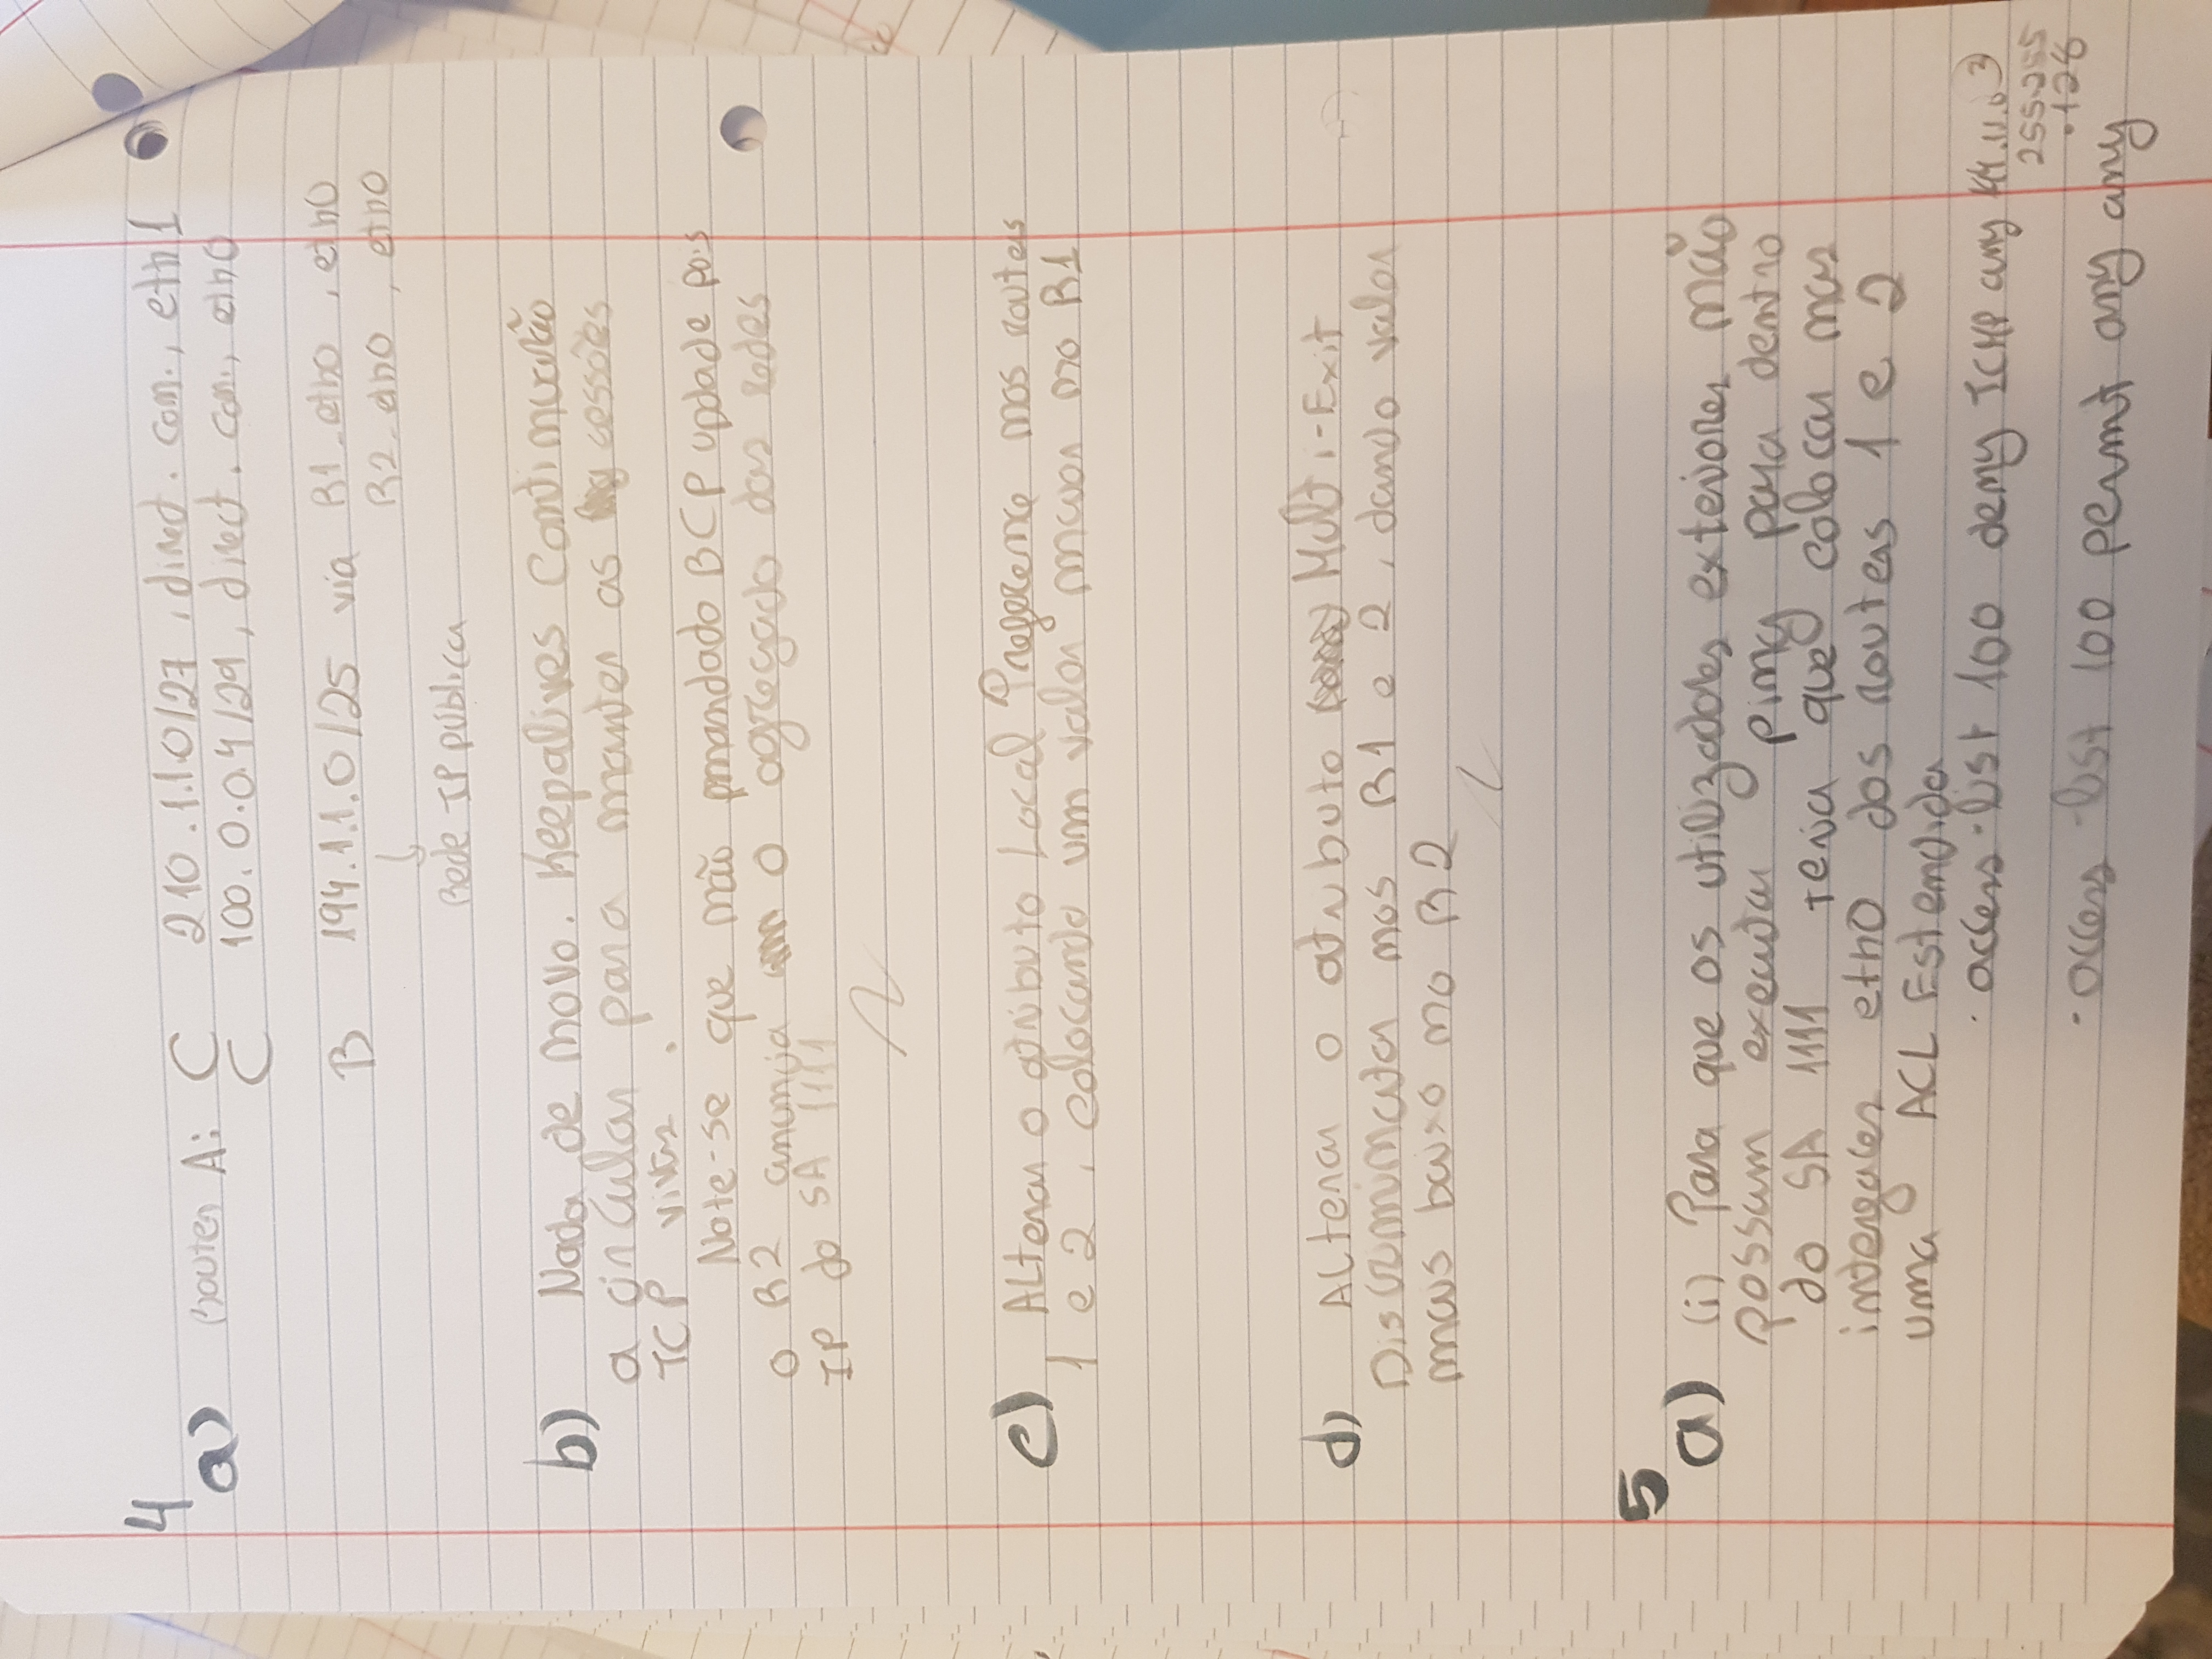 4
a) Router A: C 210.1.1.0/27, direct. con., eth1
C 100.0.0.4/29, direct. con., eth0
B 194.1.1.0/25 via R1_eth0, eth0
R2_eth0, eth0
↓
Rede IP pública
b) Nada de novo. Keepalives continuarão
a circular para manter as cessões
TCP vivas.
Note-se que não mandado BGP update pois
o R2 anuncia o agregado das redes
IP do SA 1111
c) Alterar o atributo Local Preference nos routers
1 e 2, colocando um valor maior no R1
d) Alterar o atributo Multi-Exit
Discriminator nos R1 e 2, dando valor
mais baixo no R2
5
a) (i) Para que os utilizadores exteriores não
possam executar ping para dentro
do SA 1111 teria que colocar nas
interfaces eth0 dos routers 1 e 2
uma ACL Estendida
· access-list 100 deny ICMP any
255.255
.128
· access-list 100 permit any any